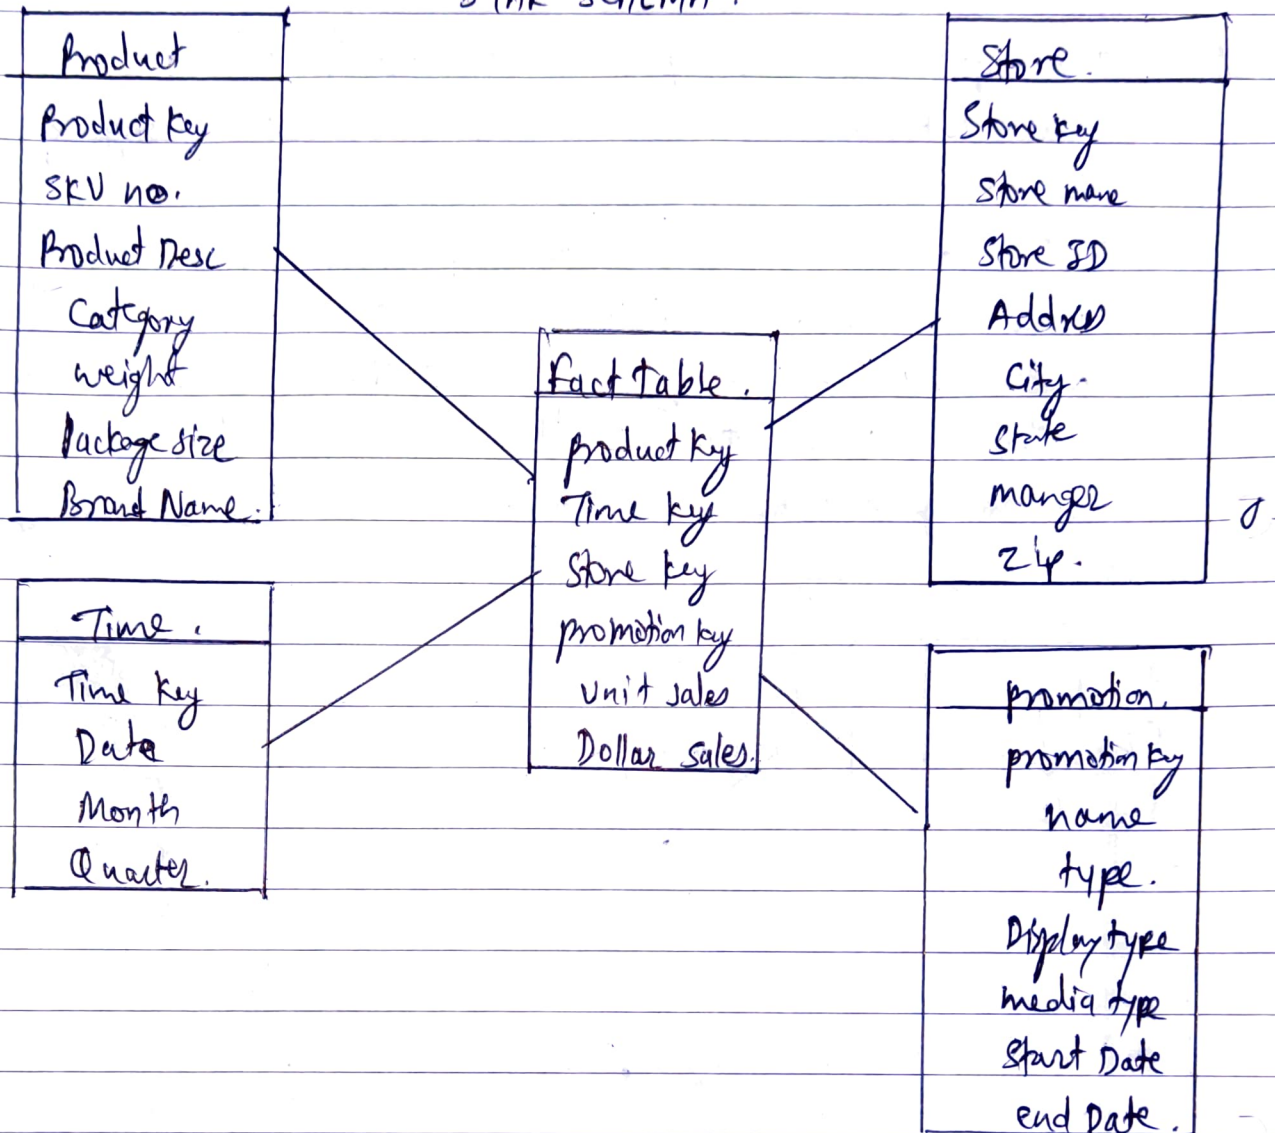 Product
Product key
SKU no.
Product Desc
Category
weight
Package size
Brand Name.
Time.
Time key
Date
Month
Quarter.
Fact table.
product key
Time key
Store key
promotion key
Unit sales
Dollar sales.
Store.
Store key
Store name
Store ID
Addres
City.
State
manger
Zip.
promotion.
promotion key
name
type.
Display type
media type
Start Date
end Date.